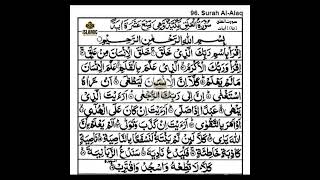 96. Surah Al-Alaq
ISLAMIC
بِسْمِ اللّٰهِ الرَّحْمٰنِ الرَّحِيْمِ
اِقْرَاْ بِاسْمِ رَبِّكَ الَّذِيْ خَلَقَ خَلَقَ الْاِنْسَانَ مِنْ عَلَقٍ
اِقْرَاْ وَرَبُّكَ الْاَكْرَمُ الَّذِيْ عَلَّمَ بِالْقَلَمِ عَلَّمَ الْاِنْسَانَ
مَا لَمْ يَعْلَمْ كَلَّا اِنَّ الْاِنْسَانَ لَيَطْغٰى اَنْ رَّاٰهُ
اسْتَغْنٰى اِنَّ اِلٰى رَبِّكَ الرُّجْعٰى اَرَءَيْتَ الَّذِيْ
يَنْهٰى عَبْدًا اِذَا صَلّٰى اَرَءَيْتَ اِنْ كَانَ عَلَى الْهُدٰى اَوْ
اَمَرَ بِالتَّقْوٰى اَرَءَيْتَ اِنْ كَذَّبَ وَتَوَلّٰى اَلَمْ يَعْلَمْ بِاَنَّ
اللّٰهَ يَرٰى كَلَّا لَئِنْ لَّمْ يَنْتَهِ لَنَسْفَعًا بِالنَّاصِيَةِ نَاصِيَةٍ
كَاذِبَةٍ خَاطِئَةٍ فَلْيَدْعُ نَادِيَهٗ سَنَدْعُ الزَّبَانِيَةَ
كَلَّا لَا تُطِعْهُ وَاسْجُدْ وَاقْتَرِبْ